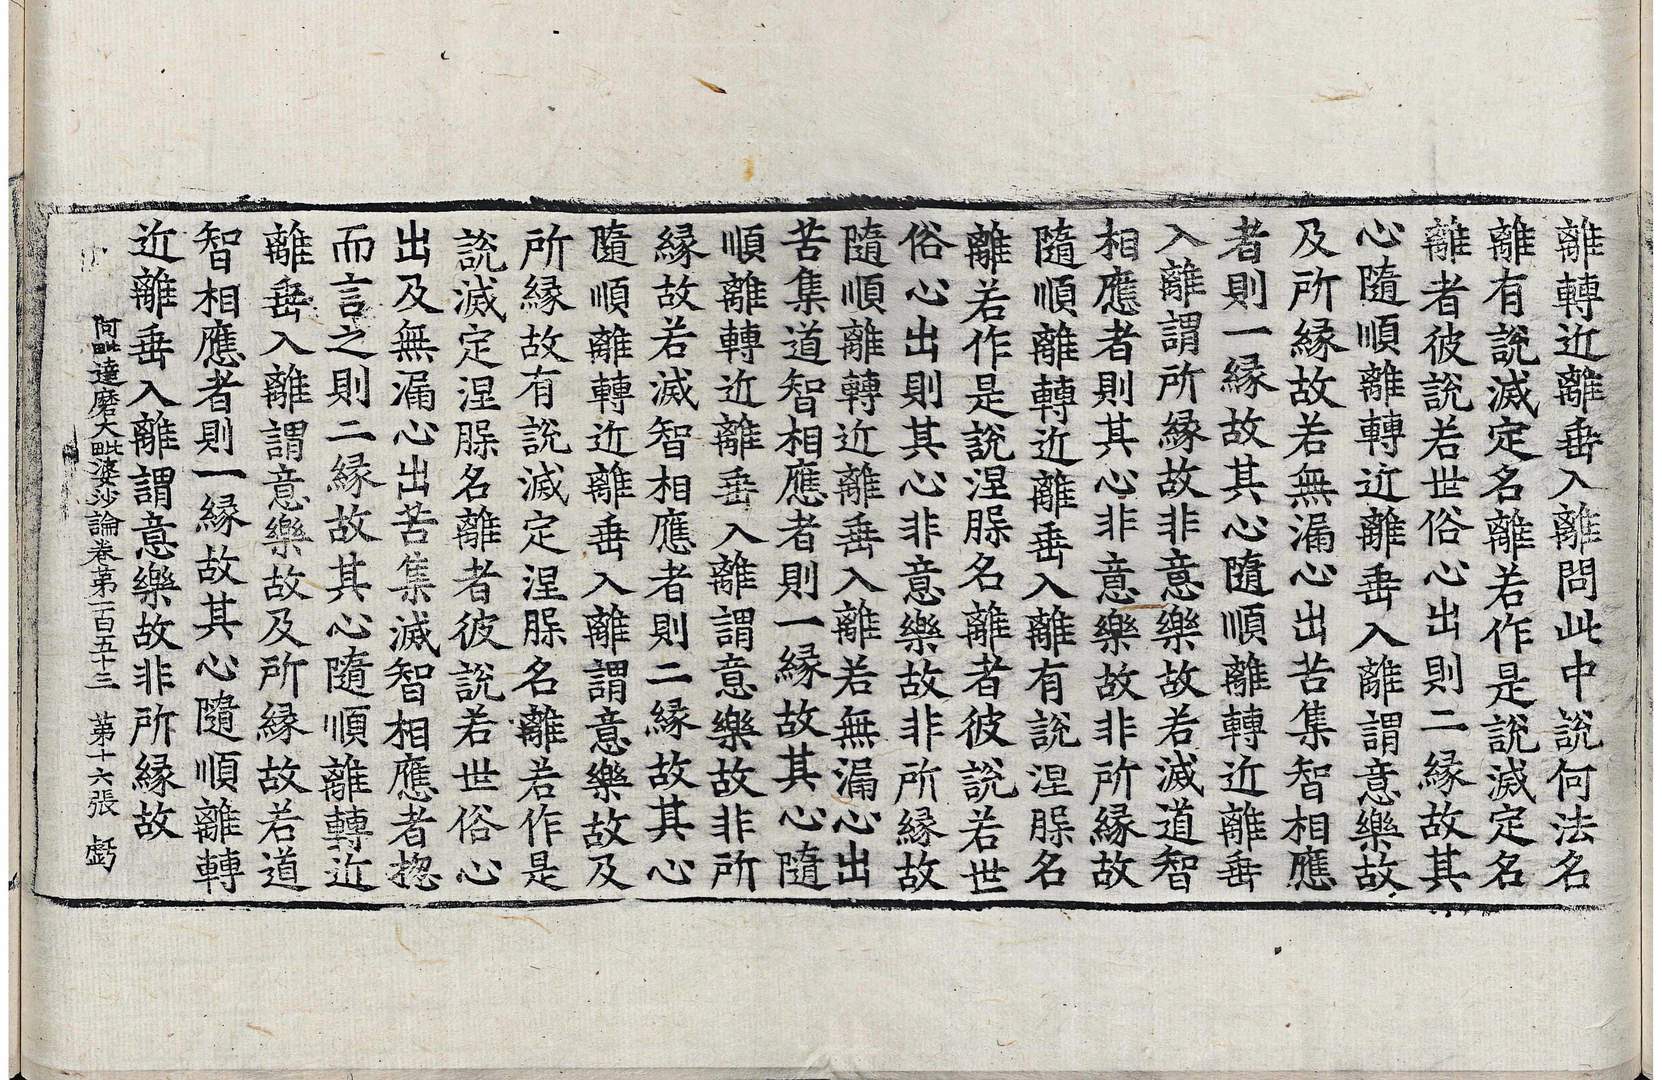 離轉近離垂入離問此中說何法名
離有說滅定名離若作是說滅定名
離者彼說若世俗心出則二縁故其
心隨順離轉近離垂入離謂意樂故
及所縁故若無漏心出苦集智相應
者則一縁故其心隨順離轉近離垂
入離謂所縁故非意樂故若滅道智
相應者則其心非意樂故非所縁故
隨順離轉近離垂入離有說涅槃名
離若作是說涅槃名離者彼說若世
俗心出則其心非意樂故非所縁故
隨順離轉近離垂入離若無漏心出
苦集道智相應者則一縁故其心隨
順離轉近離垂入離謂意樂故非所
縁故若滅智相應者則二縁故其心
隨順離轉近離垂入離謂意樂故及
所縁故有說滅定涅槃名離若作是
說滅定涅槃名離者彼說若世俗心
出及無漏心出苦集滅智相應者揔
而言之則二縁故其心隨順離轉近
離垂入離謂意樂故及所縁故若道
智相應者則一縁故其心隨順離轉
近離垂入離謂意樂故非所縁故
阿毗達磨大毗婆沙論卷第一百五十三 第十六張 虧